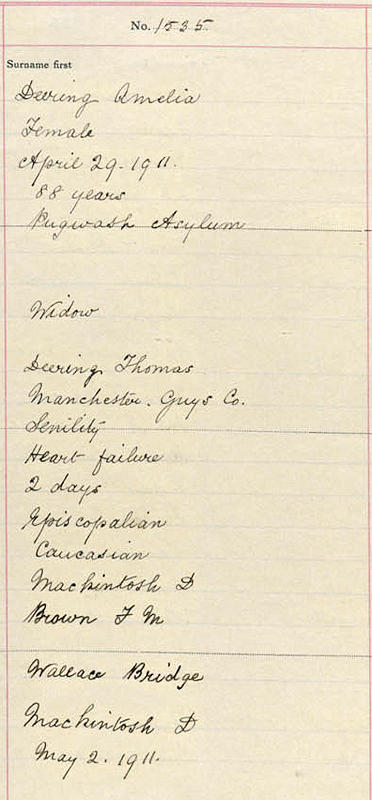 No. 1535
Surname first
Deering Amelia
Female
April 29. 1911.
88 years
Pugwash Asylum
Widow
Deering Thomas
Manchester. Guys Co.
Senility
Heart failure
2 days
Episcopalian
Caucasian
Mackintosh D
Brown F M
Wallace Bridge
Mackintosh D
May 2. 1911.